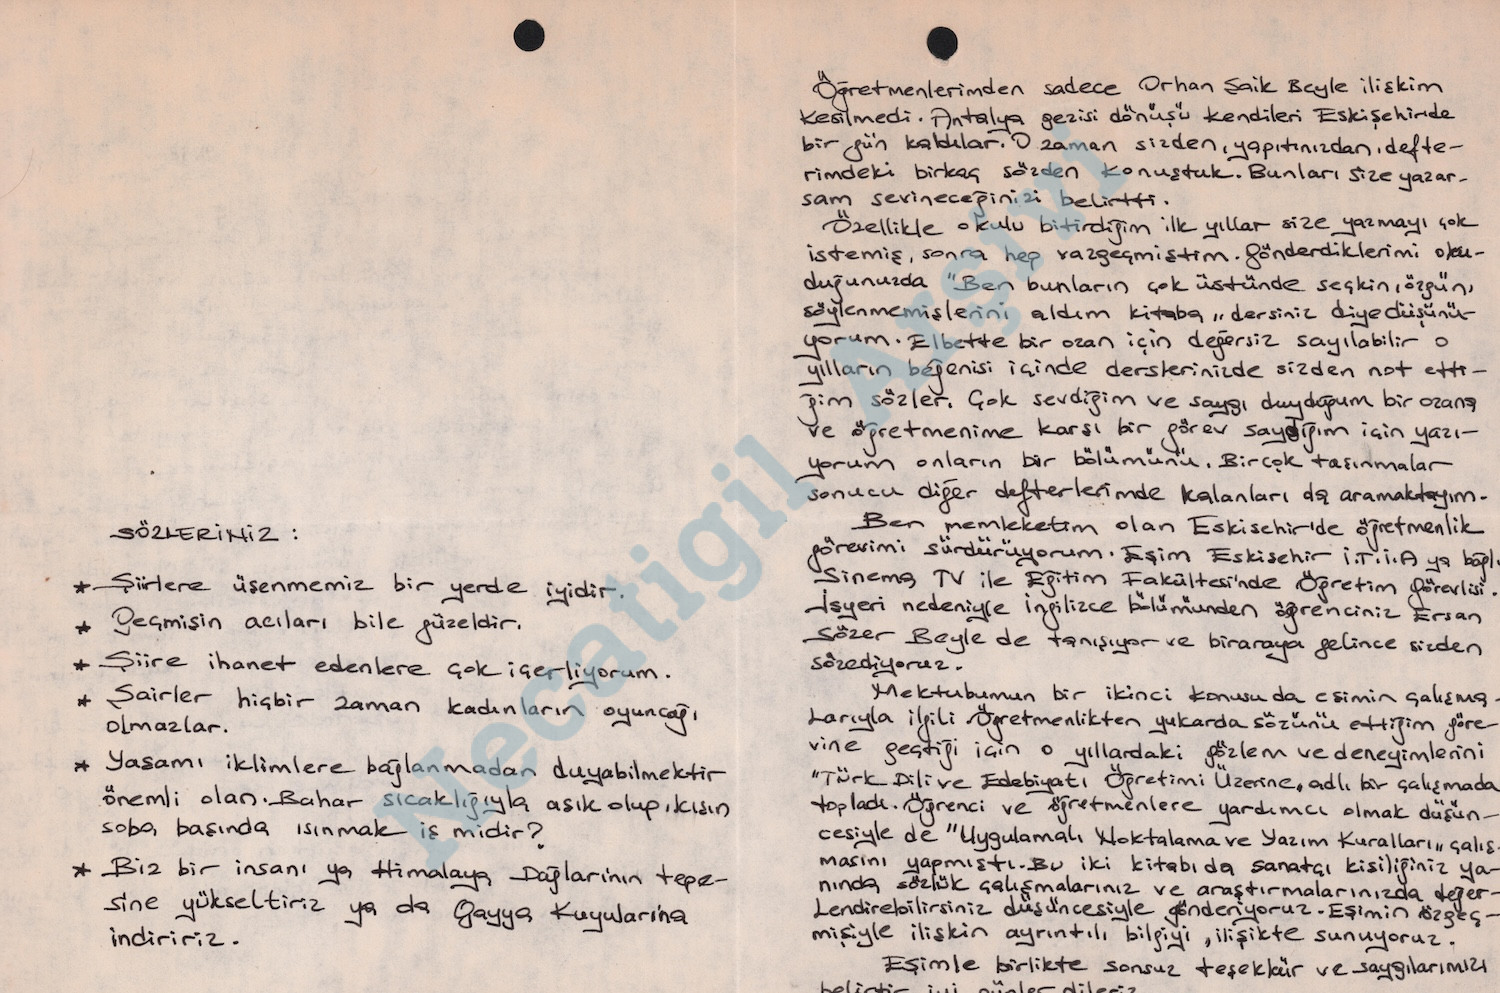 SÖZLERİNİZ :
* Şiirlere üşenmemiz bir yerde iyidir.
* Geçmişin acıları bile güzeldir.
* Şiire ihanet edenlere çok içerliyorum.
* Şairler hiçbir zaman kadınların oyuncağı
olmazlar.
* Yaşamı iklimlere bağlanmadan duyabilmektir
önemli olan. Bahar sıcaklığıyla aşık olup, kışın
soba başında ısınmak iş midir?
* Biz bir insanı ya Himalaya Dağları'nın tepe-
sine yükseltiriz ya da Gayya Kuyuları'na
indiririz.
Öğretmenlerimden sadece Orhan Şaik Beyle ilişkim
kesilmedi. Antalya gezisi dönüşü kendileri Eskişehir'de
bir gün kaldılar. O zaman sizden, yapıtınızdan, defte-
rimdeki birkaç sözden konuştuk. Bunları size yazar-
sam sevineceğinizi belirtti.
Özellikle okulu bitirdiğim ilk yıllar size yazmayı çok
istemiş, sonra hep vazgeçmiştim. Gönderdiklerimi oku-
duğunuzda "Ben bunların çok üstünde seçkin, özgün,
söylenmemişlerini aldım kitaba" dersiniz diye düşünü-
yorum. Elbette bir ozan için değersiz sayılabilir o
yılların beğenisi içinde derslerinizde sizden not etti-
ğim sözler. Çok sevdiğim ve saygı duyduğum bir ozana
ve öğretmenime karşı bir görev saydığım için yazı-
yorum onların bir bölümünü. Birçok taşınmalar
sonucu diğer defterlerimde kalanları da aramaktayım.
Ben memleketim olan Eskişehir'de öğretmenlik
görevimi sürdürüyorum. Eşim Eskişehir İ.T.İ.A ya bağlı
Sinema TV ile Eğitim Fakültesi'nde Öğretim Görevlisi.
İşyeri nedeniyle ingilizce bölümünden öğrenciniz Ersan
Sözer Beyle de tanışıyor ve biraraya gelince sizden
sözediyoruz.
Mektubumun bir ikinci konusu da eşimin çalışma-
larıyla ilgili Öğretmenlikten yukarda sözünü ettiğim göre-
vine geçtiği için o yıllardaki gözlem ve deneyimlerini
"Türk Dili ve Edebiyatı Öğretimi Üzerine" adlı bir çalışmada
topladı. Öğrenci ve öğretmenlere yardımcı olmak düşün-
cesiyle de "Uygulamalı Noktalama ve Yazım Kuralları" çalış-
masını yapmıştı. Bu iki kitabı da sanatçı kişiliğiniz ya-
nında sözlük çalışmalarınız ve araştırmalarınızda değer-
lendirebilirsiniz düşüncesiyle gönderiyoruz. Eşimin özgeç-
mişiyle ilişkin ayrıntılı bilgiyi, ilişikte sunuyoruz.
Eşimle birlikte sonsuz teşekkür ve saygılarımızı
belirtir iyi günler dileriz
Necatigil Arşivi